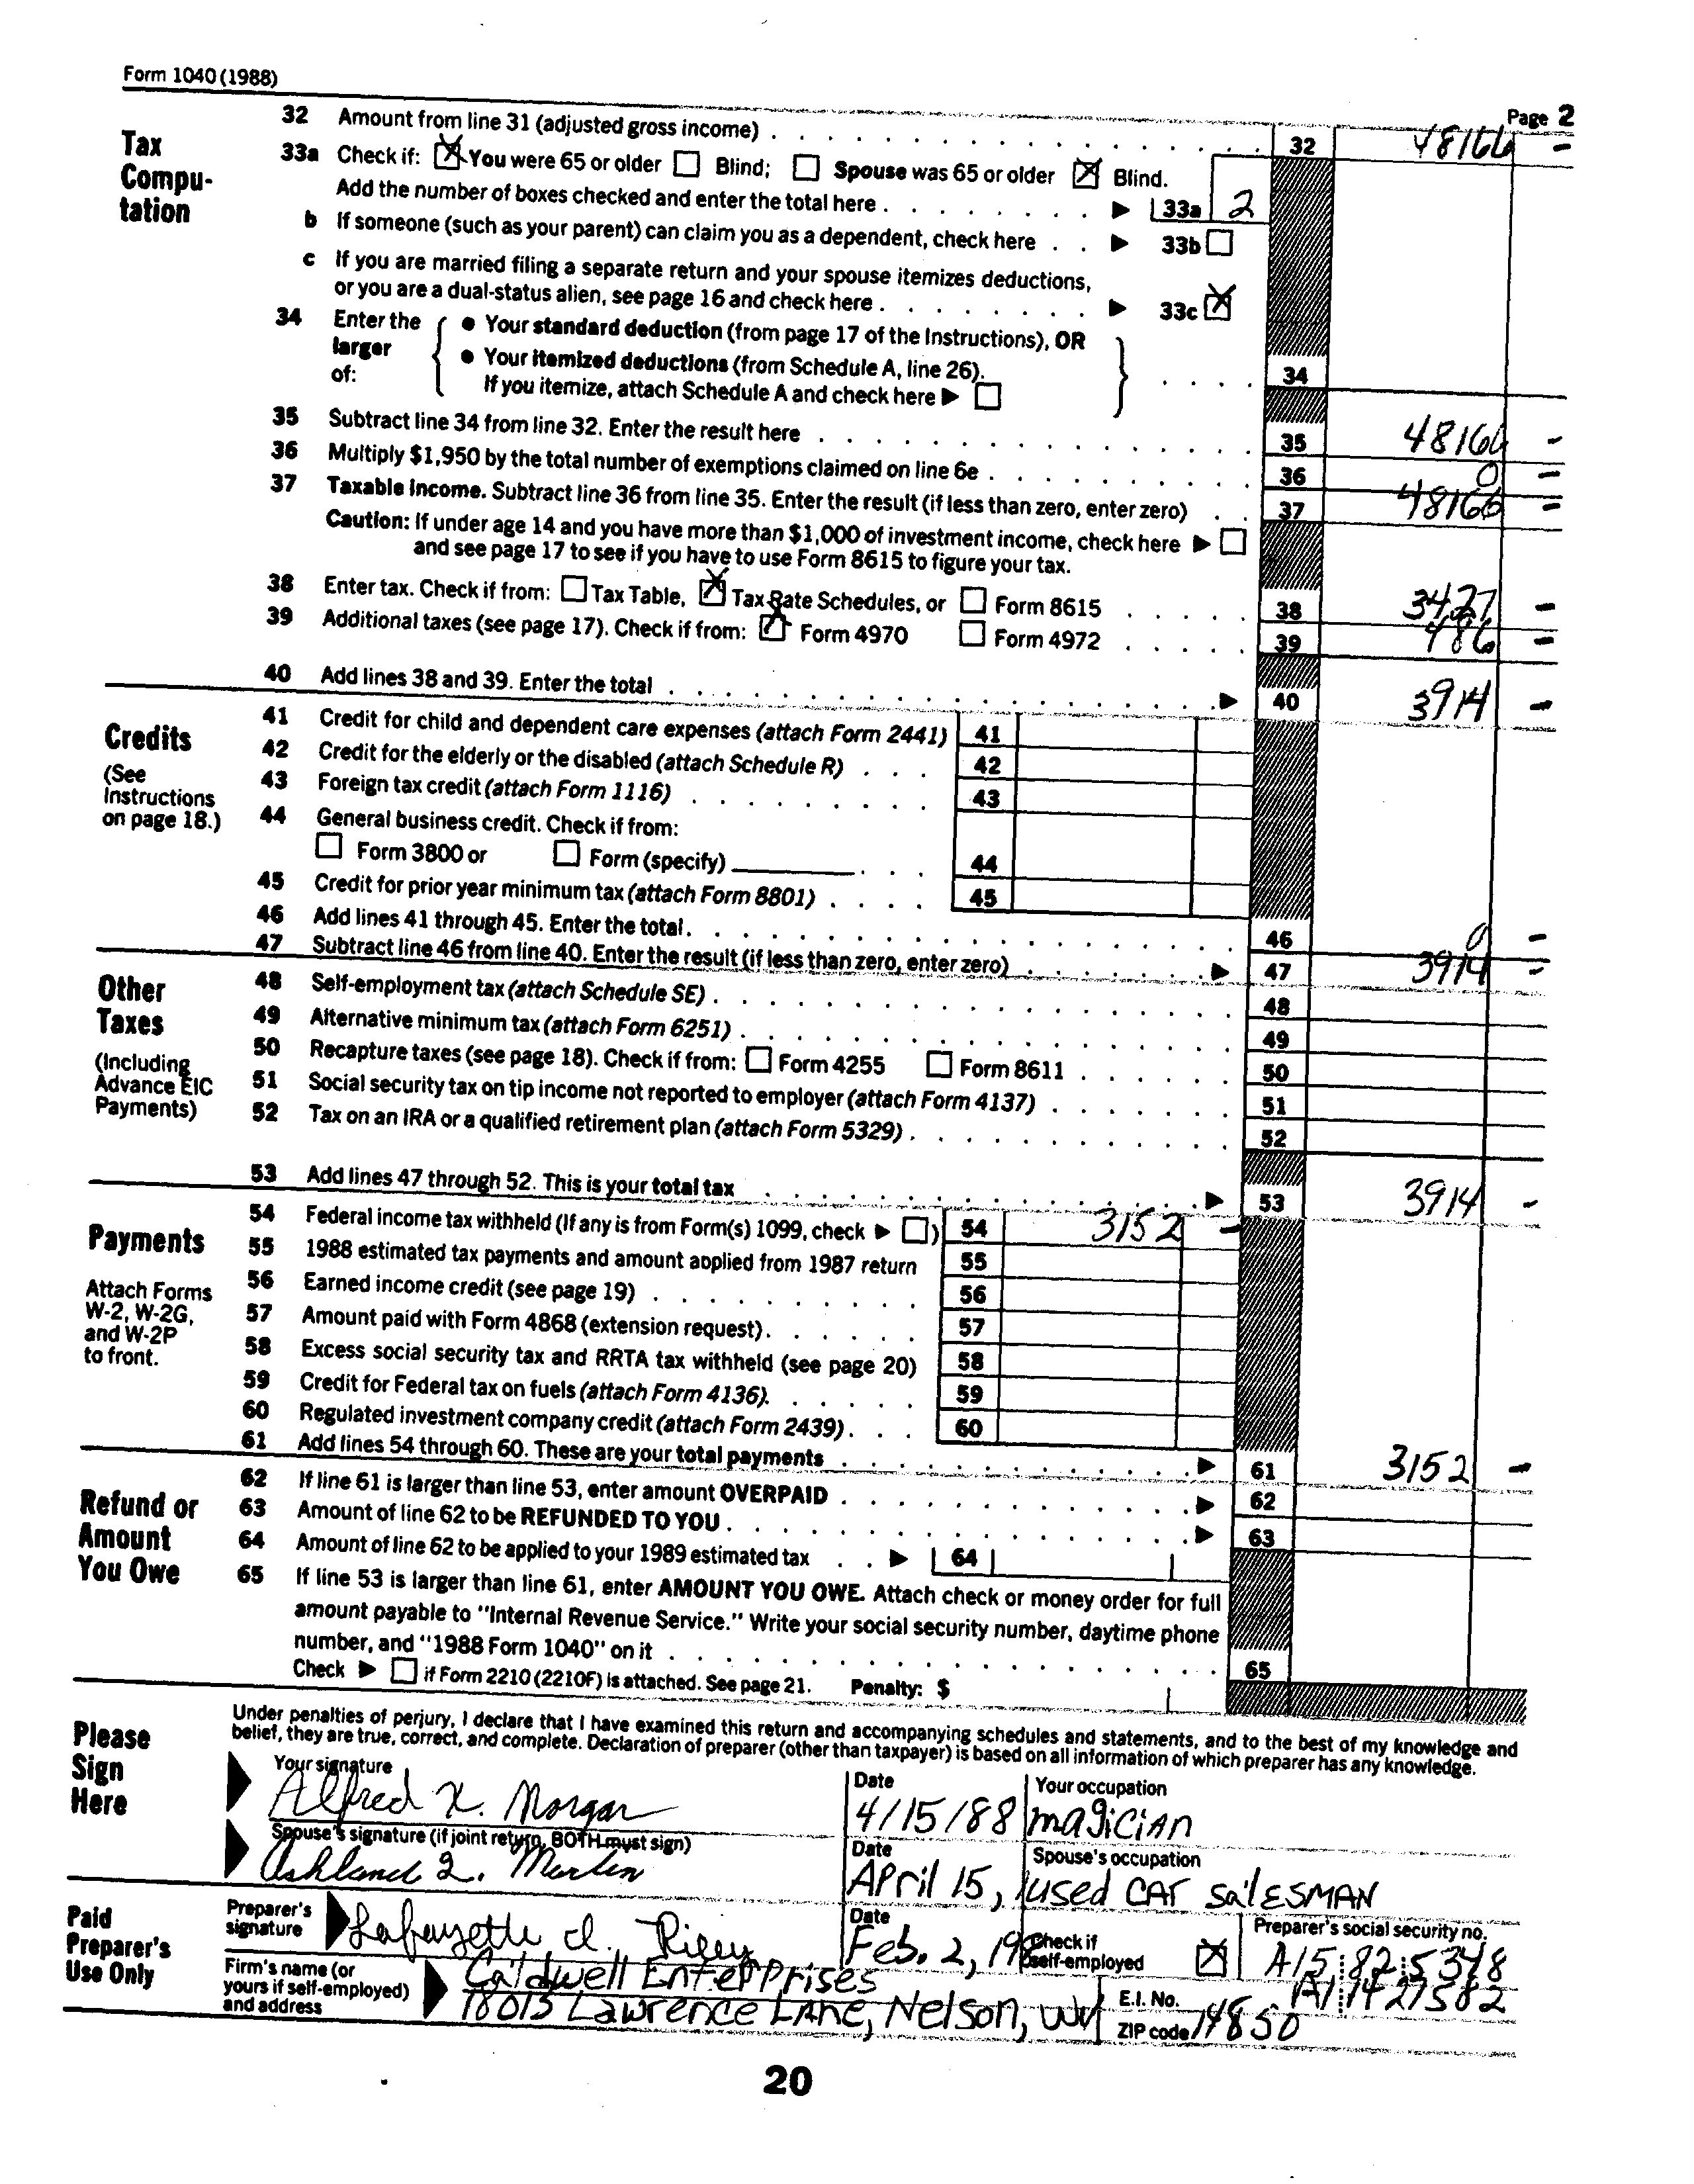 Form 1040 (1988)
Page 2
Tax Compu-tation
32 Amount from line 31 (adjusted gross income) . . . 32 48166 –
33a Check if: ☒ You were 65 or older ☐ Blind; ☐ Spouse was 65 or older ☒ Blind.
Add the number of boxes checked and enter the total here . . . ▶ 33a 2
b If someone (such as your parent) can claim you as a dependent, check here . . ▶ 33b ☐
c If you are married filing a separate return and your spouse itemizes deductions,
or you are a dual-status alien, see page 16 and check here . . . ▶ 33c ☒
34 Enter the larger of: { • Your standard deduction (from page 17 of the Instructions), OR
• Your itemized deductions (from Schedule A, line 26).
If you itemize, attach Schedule A and check here ▶ ☐ } . . . . 34
35 Subtract line 34 from line 32. Enter the result here . . . 35 48166 –
36 Multiply $1,950 by the total number of exemptions claimed on line 6e . . . 36 0 –
37 Taxable income. Subtract line 36 from line 35. Enter the result (if less than zero, enter zero) . . 37 48166 –
Caution: If under age 14 and you have more than $1,000 of investment income, check here ▶ ☐
and see page 17 to see if you have to use Form 8615 to figure your tax.
38 Enter tax. Check if from: ☐ Tax Table, ☒ Tax Rate Schedules, or ☐ Form 8615 . . . 38 3427 –
39 Additional taxes (see page 17). Check if from: ☒ Form 4970 ☐ Form 4972 . . . 39 486 –
40 Add lines 38 and 39. Enter the total . . . ▶ 40 3914 –
Credits
(See Instructions on page 18.)
41 Credit for child and dependent care expenses (attach Form 2441) 41
42 Credit for the elderly or the disabled (attach Schedule R) . . . 42
43 Foreign tax credit (attach Form 1116) . . . 43
44 General business credit. Check if from:
☐ Form 3800 or ☐ Form (specify) ________ . . . 44
45 Credit for prior year minimum tax (attach Form 8801) . . . . 45
46 Add lines 41 through 45. Enter the total . . . 46 0 –
47 Subtract line 46 from line 40. Enter the result (if less than zero, enter zero) . . . ▶ 47 3914 –
Other Taxes
(Including Advance EIC Payments)
48 Self-employment tax (attach Schedule SE) . . . 48
49 Alternative minimum tax (attach Form 6251) . . . 49
50 Recapture taxes (see page 18). Check if from: ☐ Form 4255 ☐ Form 8611 . . . 50
51 Social security tax on tip income not reported to employer (attach Form 4137) . . . 51
52 Tax on an IRA or a qualified retirement plan (attach Form 5329) . . . 52
53 Add lines 47 through 52. This is your total tax . . . ▶ 53 3914 –
Payments
Attach Forms W-2, W-2G, and W-2P to front.
54 Federal income tax withheld (If any is from Form(s) 1099, check ▶ ☐) 54 3152 –
55 1988 estimated tax payments and amount applied from 1987 return 55
56 Earned income credit (see page 19) . . . 56
57 Amount paid with Form 4868 (extension request) . . . 57
58 Excess social security tax and RRTA tax withheld (see page 20) 58
59 Credit for Federal tax on fuels (attach Form 4136) . . . 59
60 Regulated investment company credit (attach Form 2439) . . . 60
61 Add lines 54 through 60. These are your total payments . . . ▶ 61 3152 –
Refund or Amount You Owe
62 If line 61 is larger than line 53, enter amount OVERPAID . . . ▶ 62
63 Amount of line 62 to be REFUNDED TO YOU . . . ▶ 63
64 Amount of line 62 to be applied to your 1989 estimated tax . . ▶ 64
65 If line 53 is larger than line 61, enter AMOUNT YOU OWE. Attach check or money order for full
amount payable to "Internal Revenue Service." Write your social security number, daytime phone
number, and "1988 Form 1040" on it . . . 65
Check ▶ ☐ if Form 2210 (2210F) is attached. See page 21. Penalty: $
Please Sign Here
Under penalties of perjury, I declare that I have examined this return and accompanying schedules and statements, and to the best of my knowledge and
belief, they are true, correct, and complete. Declaration of preparer (other than taxpayer) is based on all information of which preparer has any knowledge.
Your signature Date Your occupation
Alfred X. Morgan 4/15/88 magician
Spouse's signature (if joint return, BOTH must sign) Date Spouse's occupation
Ashland Q. Merlin April 15, used car salesman
Paid Preparer's Use Only
Preparer's signature Lafayette d. Riley Date Feb. 2, 198 Check if self-employed ☒ Preparer's social security no. A15:82:5348
Firm's name (or yours if self-employed) and address Caldwell Enterprises E.I. No. A1:1427582
18013 Lawrence Lane, Nelson, WV ZIP code 14850
20